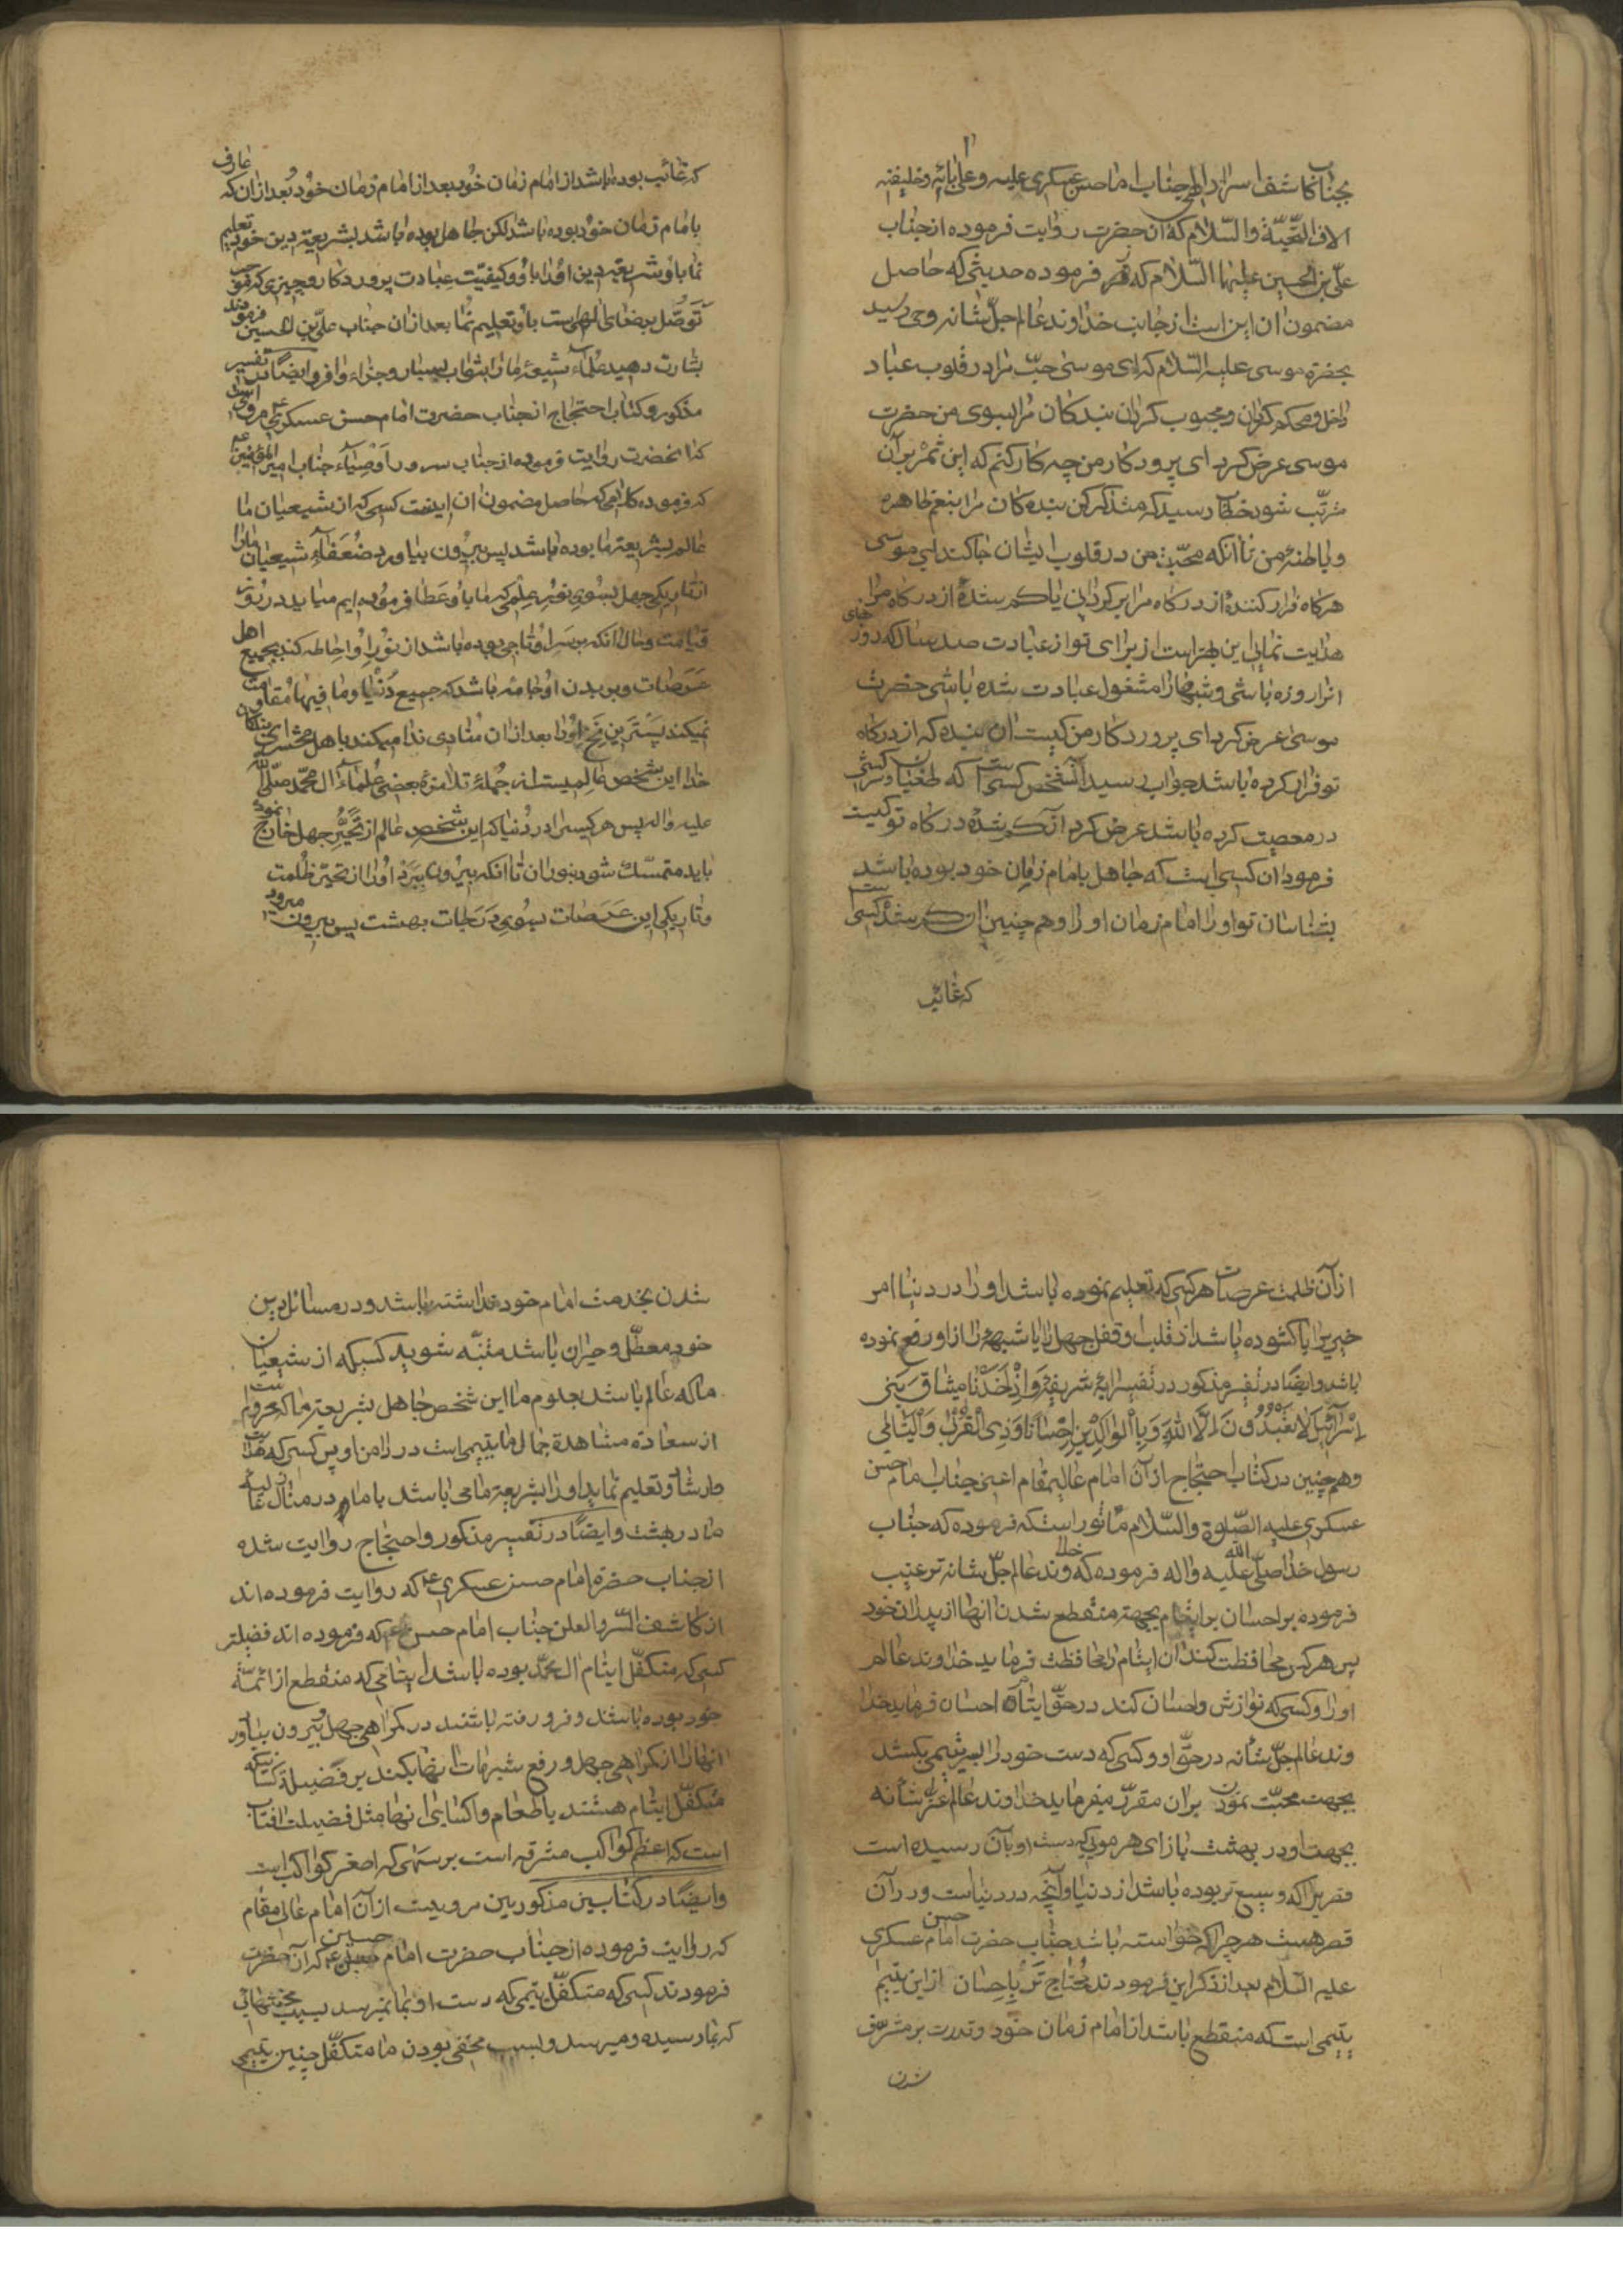 بجناب کاشف اسرار الهی جناب امام حسن عسکری علیه وعلی آبائه وخلیفته
الاف التحیّة والسّلام که آن حضرت روایت فرموده از جناب
علیّ بن الحسین علیهما السّلام که فرموده حدیثی که حاصل
مضمون آن این است از جانب خداوند عالم جلّ شانه وحی رسید
بحضرة موسی علیه السّلام که ای موسی حبّ مرا در قلوب عباد
داخل ومحکم گردان ومحبوب گردان بندگان مرا بسوی من حضرت
موسی عرض کرد ای پرورد کار من چه کار کنم که این ثمر بر آن
مترتّب شود خطاب رسید که متذکر کن بنده کان مرا بنعم ظاهره
وباطنهٔ من تا آنکه محبّت من در قلوب ایشان جا کند ای موسی
هرگاه فرار کنندهٔ از درگاه مرا برگردانی یا گم شدهٔ از درگاه مرا
هدایت نمائی این بهتر است از برای تو از عبادت صد ساله که روز
انرا روزه باشی وشبها را مشغول عبادت شده باشی حضرت
موسی عرض کرد ای پرورد کار من کیست ان بنده که از درکاه
تو فرار کرده باشد جواب رسید آنشخص کسی است که طغیان وسرکشی
در معصیت کرده باشد عرض کرد آن گم شدهٔ درکاه تو کیست
فرمود ان کسی است که جاهل بامام زمان خود بوده باشد
بشناسان تو او را امام زمان او را وهم چنین ان گم شده کسی است
که غائب
که غائب بوده باشد از امام زمان خود بعد از امام زمان خود بعد از ان که عارف
بامام زمان خود بوده باشد لکن جاهل بوده باشد بشریعة دین خود تعلیم
نما باو شریعة دین او را باو وکیفیّت عبادت پروردکار وچیزی که موجب
توصّل برضای الهی است باو تعلیم نما بعد از ان جناب علیّ بن الحسین فرمودند
بشارت دهید علماء شیعهٔ ما را بثواب بسیار وجزاء وافر وایضًا در تفسیر
مذکور وکتاب احتجاج از جناب حضرت امام حسن عسکری ع مروی است
که انحضرت روایت فرموده از جناب سرور اوصیاء جناب امیر المؤمنین ع
که فرموده کلامی که حاصل مضمون ان اینست کسی که از شیعیان ما
عالم بشریعة ما بوده باشد پس بیرون بیاورد ضعفاء شیعیان ما را
از تاریکی جهل بسوی نور علمی که ما باو عطا فرموده ایم میاید در روز
قیامت وحال آنکه بر سر او تاجی بوده باشد از نور او احاطه کند بجمیع اهل
عرصات وبر بدن او جامه باشد که جمیع دنیا وما فیها مقاومت
نمیکند پست ترین نخ او را بعد از ان منادی ندا میکند باهل محشر ای بندگان
خدا این شخص عالمیست از جملهٔ تلامذهٔ بعضی علماء ال محمّد صلّی اللّه
علیه واله پس هر کسیرا در دنیا که این شخص عالم از تحیّر جهل خارج نموده
باید متمسّک شود بنور ان تا آنکه بیرون ببرد او را از تحیّر ظلمت
وتاریکی این عرصات بسوی درجات بهشت پس بیرون میرود
از آن ظلمت عرصات هر کسی که تعلیم نموده باشد او را در دنیا امر
خیریرا یا گشوده باشد از قلب او قفل جهل را یا شبههٔ را از او رفع نموده
باشد وایضًا در تفسیر مذکور در تفسیر ایهٔ شریفهٔ وَاِذْ اَخَذْنا مِیثاقَ بَنی
اِسْرآئیلَ لا تَعْبُدُونَ اِلّا اللّهَ وَبِالْوالِدَیْنِ اِحْسانًا وَذِی الْقُرْبی وَالْیَتامی
وهم چنین در کتاب احتجاج از آن امام عالیمقام اعنی جناب امام حسن
عسکری علیه الصّلوة والسّلام مأثور است که فرموده که جناب
رسول خدا صلّی اللّه علیه واله فرموده که خداوند عالم جلّ شانه ترغیب
فرموده بر احسان بر ایتام بجهة منقطع شدن انها از پدران خود
پس هر کس محافظت کند ان ایتام را محافظت فرماید خداوند عالم
او را وکسی که نوازش واحسان کند در حقّ ایتام احسان فرماید خدا
وند عالم جلّ شأنه در حقّ او وکسی که دست خود را بسر یتیمی بکشد
بجهت محبّت نمودن بر ان مقرّر میفرماید خداوند عالم عزّ شأنه
بجهت او در بهشت بازای هر موئیکه دست او بآن رسیده است
قصریرا که وسیع تر بوده باشد از دنیا وآنچه در دنیاست ودر آن
قصر هست هر چرا که خواسته باشد جناب حضرت امام حسن عسکری
علیه السّلام بعد از ذکر این فرمودند محتاج تر باحسان از این یتیم
یتیمی است که منقطع باشد از امام زمان خود وقدرت بر مشرّف
شدن
شدن بخدمت امام خود نداشته باشد ودر مسائل دین
خود معطّل وحیران باشد متنبّه شوید کسیکه از شیعیان
ما که عالم باشد بعلوم ما این شخص جاهل بشریعة ما که محروم است
از سعادة مشاهدة جمال ما یتیمی است در دامن او پس کسی که هدایت
وارشاد وتعلیم نماید او را بشریعة ما می باشد با ما در منازل عالیهٔ
ما در بهشت وایضًا در تفسیر مذکور واحتجاج روایت شده
از جناب حضرة امام حسن عسکری ع که روایت فرموده اند
از کاشف السّر والعلن جناب امام حسن ع که فرموده اند فضیلت
کسی که متکفّل ایتام ال محمّد بوده باشد ایتامی که منقطع از ائمّهٔ
خود بوده باشند وفرو رفته باشند در گمراهی جهل وبیرون بیاورد
انها را از گمراهی جهل ورفع شبهات انها بکند بر فضیلة کسانیکه
متکفّل ایتام هستند باطعام واکسای انها مثل فضیلت افتاب
است که اعظم کواکب مشرقه است بر سهی که اصغر کواکب است
وایضًا در کتابین مذکورین مرویست از آن امام عالی مقام
که روایت فرموده از جناب حضرت امام حسین ع که آن حضرت
فرمودند کسی که متکفّل یتیمی که دست او بما نمیرسد بسبب محنتهائی
که بما رسیده ومیرسد وبسبب مخفی بودن ما متکفّل چنین یتیمی